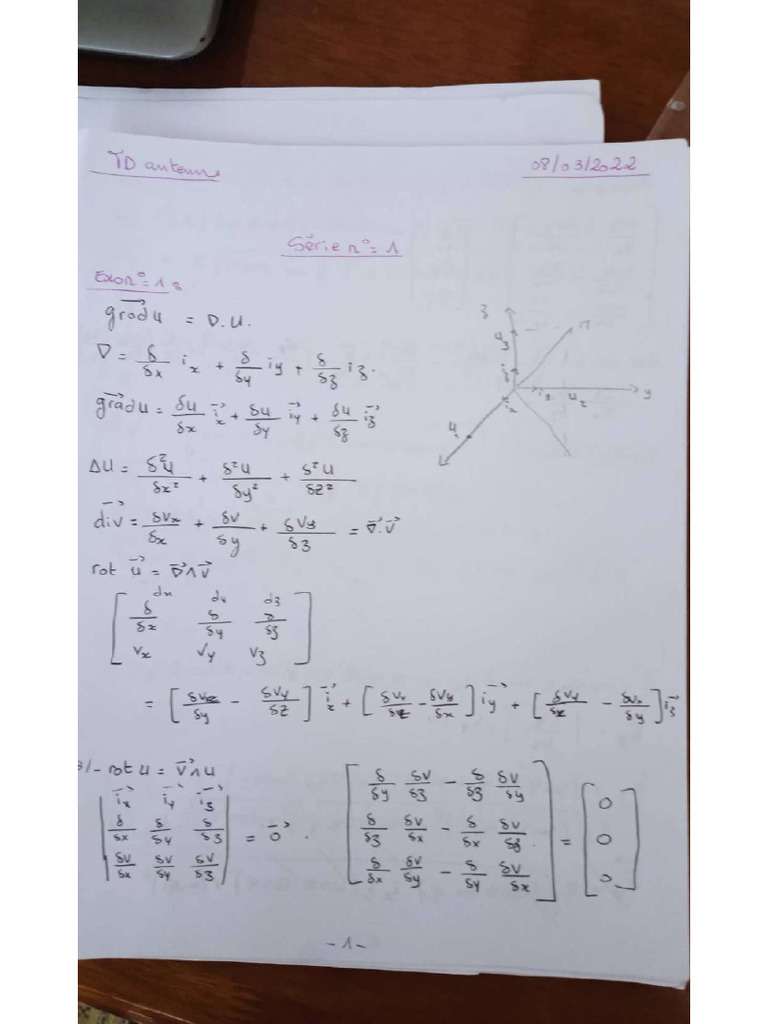 TD antenne
08/03/2022
Série n° = 1
Exo n° = 1 :
grad u = ∇.U.
∇ = δ/δx ix + δ/δy iy + δ/δz iz.
grad u = δu/δx ix + δu/δy iy + δu/δz iz
ΔU = δ²U/δx² + δ²U/δy² + δ²U/δz²
div = δVx/δx + δV/δy + δVy/δz = ∇.V
rot u = ∇∧V
δ/δx δ/δy δ/δz
Vx Vy Vz
= [δVz/δy − δVy/δz] ix + [δVx/δz − δVz/δx] iy + [δVy/δx − δVx/δy] iz
3/- rot u = V∧u
ix iy iz
δ/δx δ/δy δ/δz = 0
δV/δx δV/δy δV/δz
δ/δy δV/δz − δ/δz δV/δy
δ/δz δV/δx − δ/δx δV/δz = 0
δ/δx δV/δy − δ/δy δV/δx
0
0
0
z
u3
iz
y
iy
u2
ix
u1
-1-